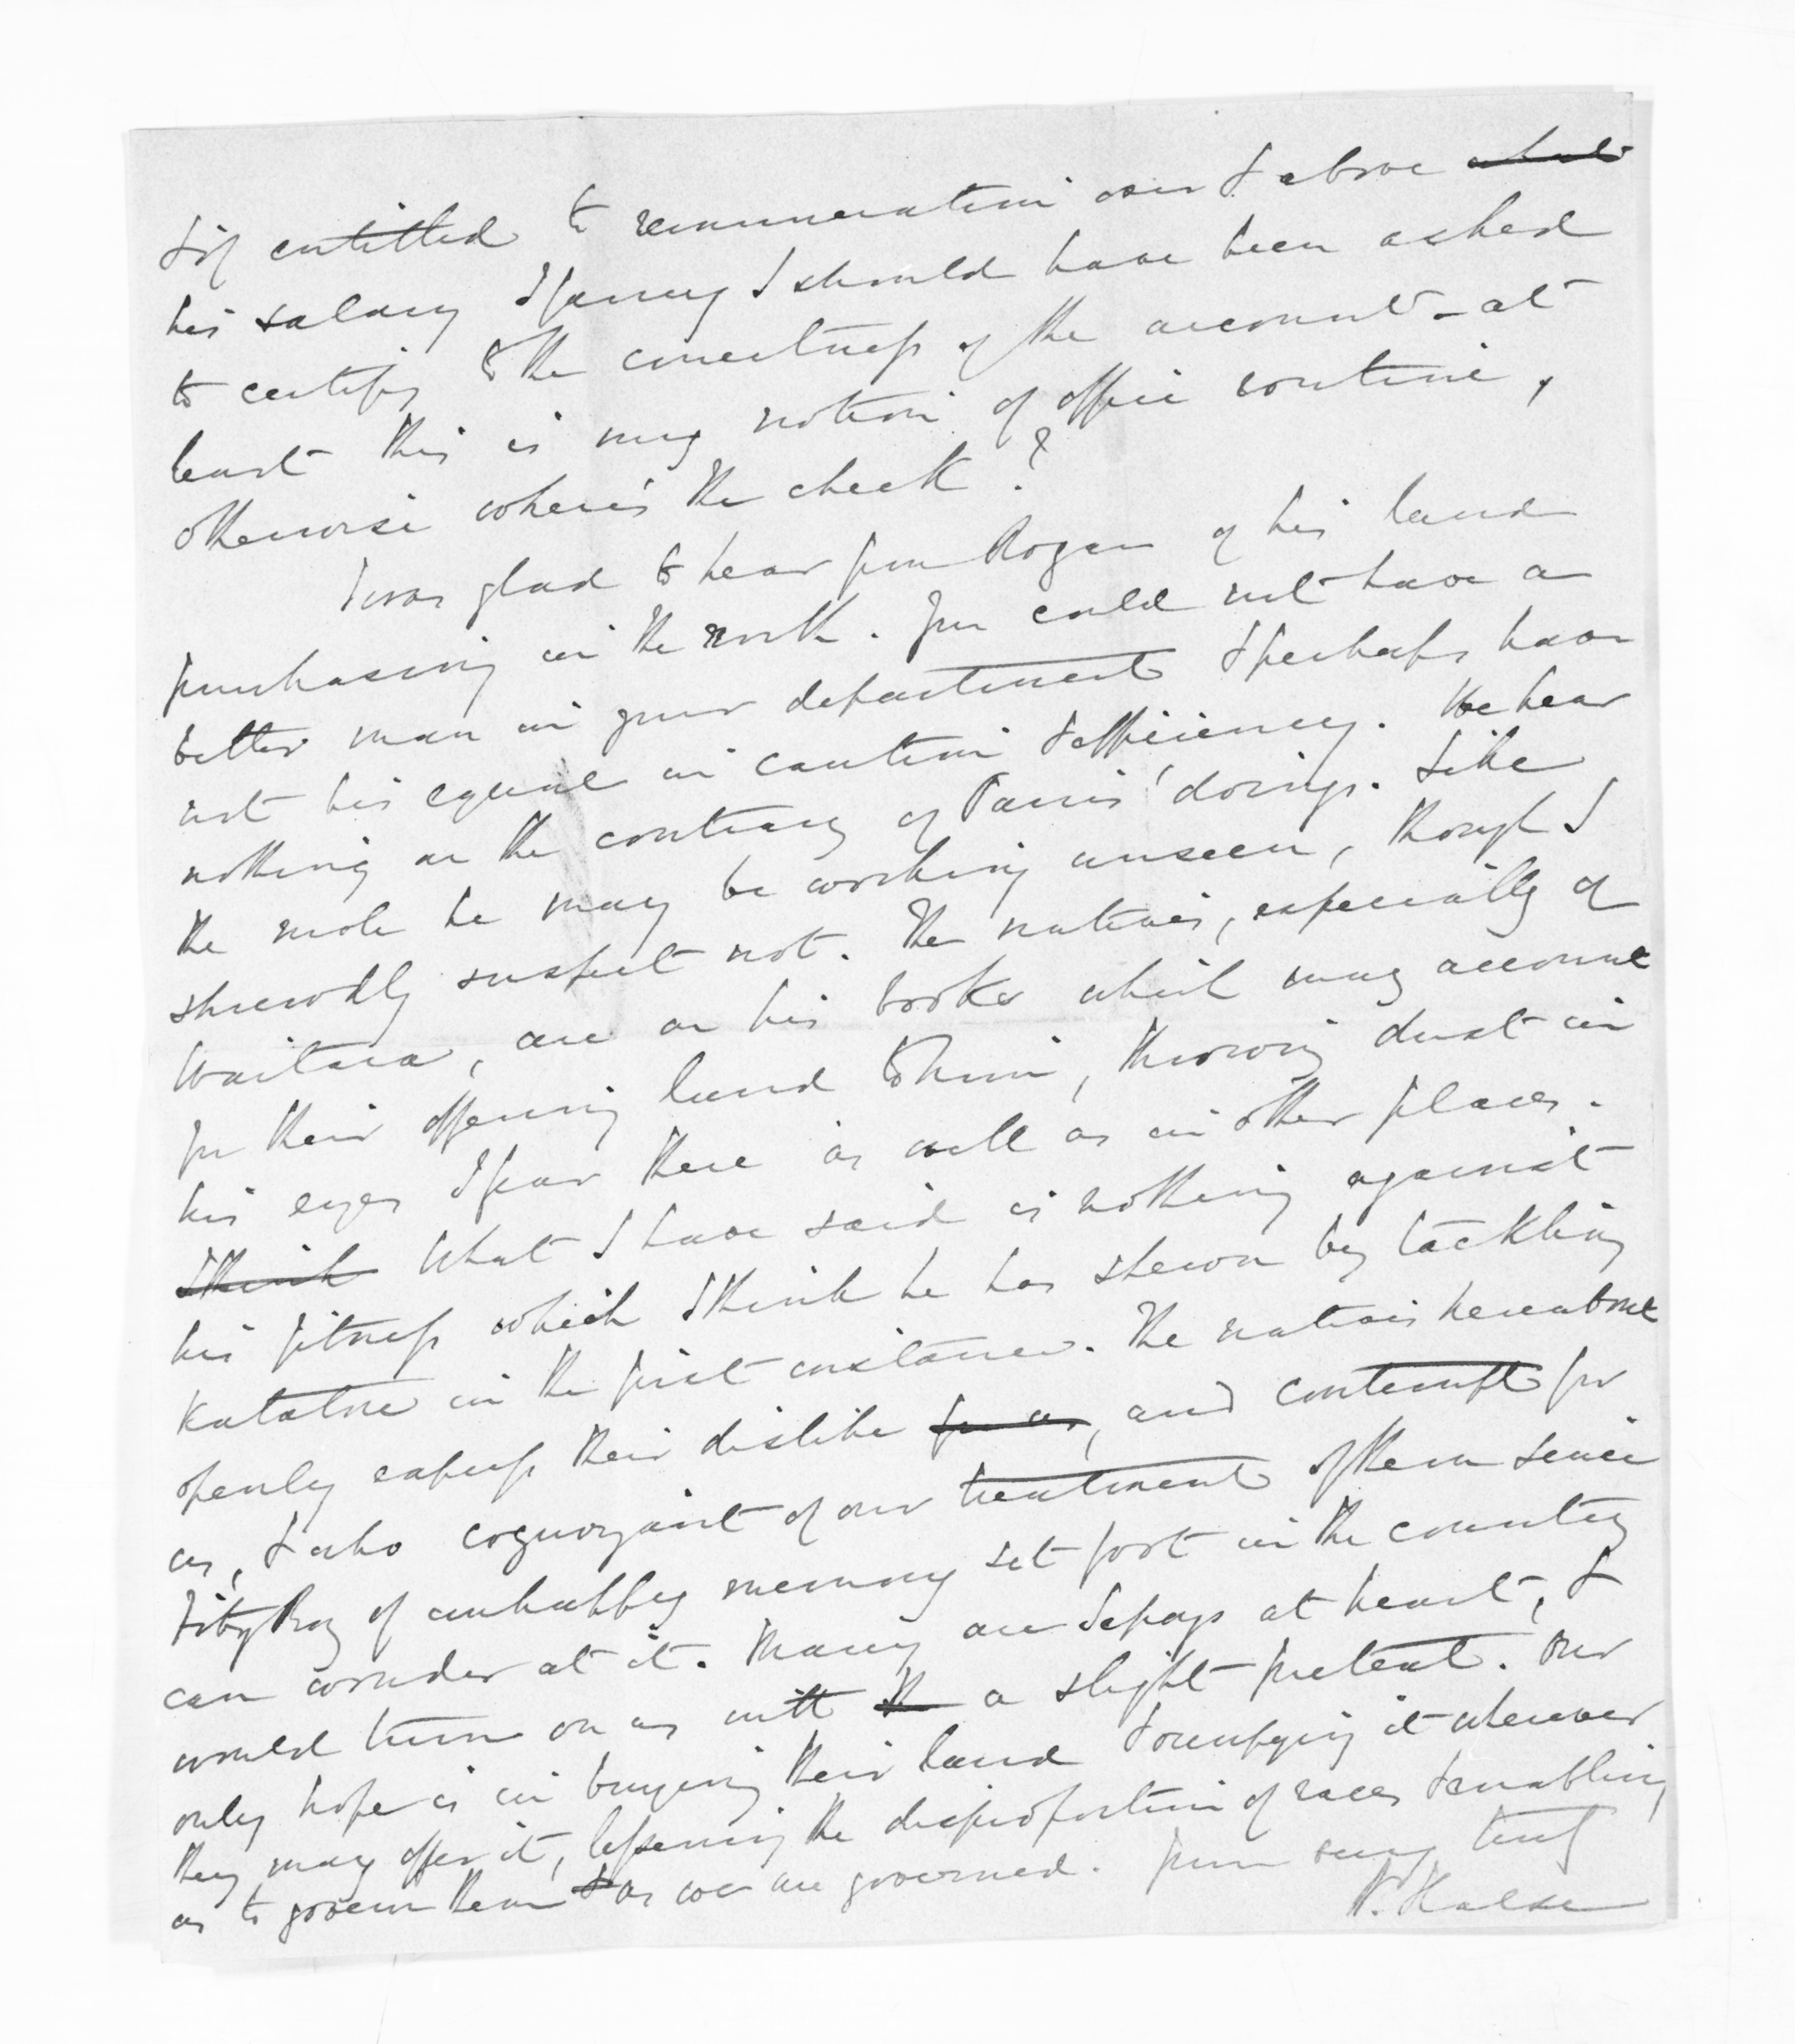 & if entitled to remuneration over & above
his salary I fancy I should have been asked
to certify to the correctness of the account - at
least this is my notion of office routine,
otherwise where's the check?
I was glad to hear from Rogan of his land
purchasing in the north. You could not have a
better man in your department & perhaps have
not his equal in caution & efficiency. We hear
nothing on the contrary of Parris' doings. Like
the mole he may be working unseen, though I
shrewdly suspect not. The natives, especially of
Waitara, are on his books which may account
for their offering land to him, throwing dust in
his eyes I fear there as well as in other places.
I think What I have said is nothing against
his fitness which I think he has shewn by tackling
Katatore in the first instance. The natives hereabout
openly express their dislike for us, and contempt for
us, & who cognizant of our treatment of them since
FitzRoy of unhappy memory set foot in the country
can wonder at it. Many are Sepoys at heart, &
would turn on us with a slight pretext. Our
only hope is in buying their land & occupying it wherever
they may offer it, lessening the disproportion of races & enabling
us to govern them & as we are governed. Yours very truly
W. Halse